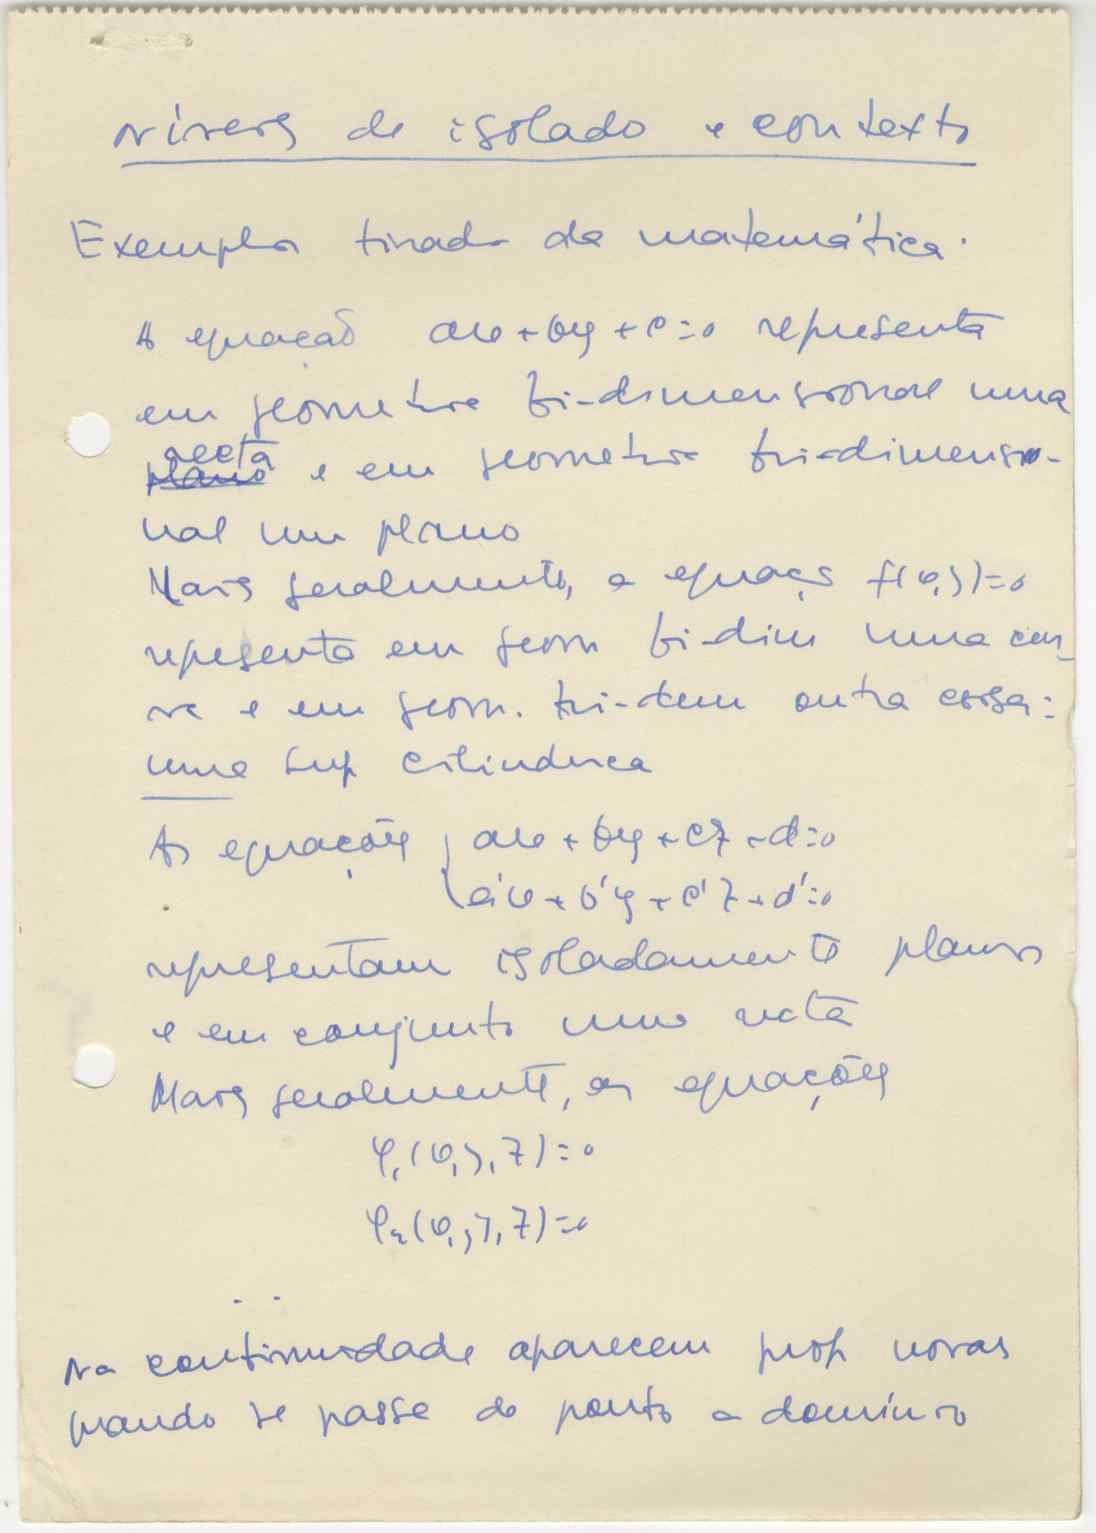 Níveis de isolado e contexto
Exemplo tirado da matemática.
A equação ax + by + c = 0 representa
em geometria bi-dimensional uma
recta e em geometria tri-dimensio-
nal um plano
Mais geralmente, a equação f(x,y)=0
representa em geom bi-dim uma cur-
va e em geom. tri-dim outra coisa:
uma sup cilindrica
As equações { ax + by + cz + d = 0
a'x + b'y + c'z + d' = 0
representam isoladamente planos
e em conjunto uma recta
Mais geralmente, as equações
φ₁(x,y,z)=0
φ₂(x,y,z)=0
. .
Na continuidade aparecem prop novas
quando se passa do ponto a domínio